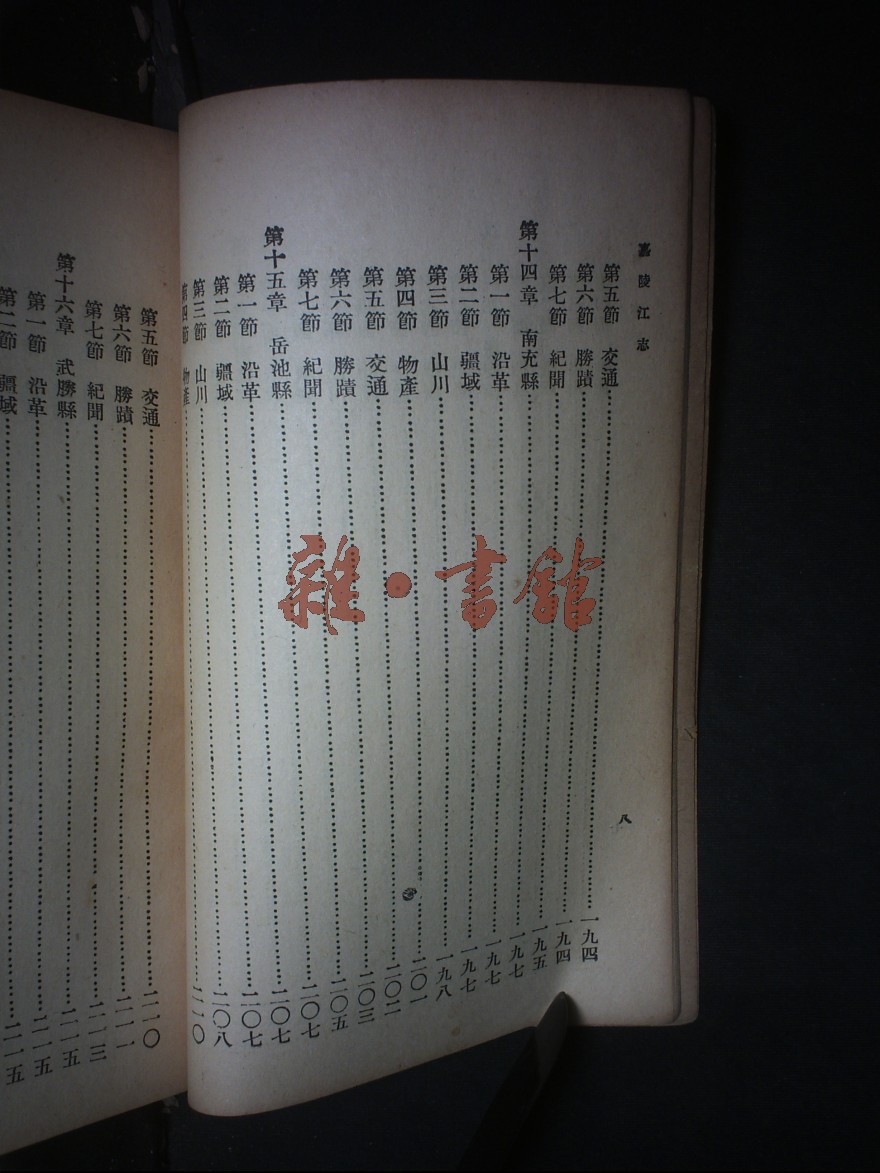 嘉陵江志
八
第五節 交通……一九四
第六節 勝蹟……一九四
第七節 紀聞……一九五
第十四章 南充縣……一九七
第一節 沿革……一九七
第二節 疆域……一九七
第三節 山川……一九八
第四節 物產……二〇一
第五節 交通……二〇二
第六節 勝蹟……二〇三
第七節 紀聞……二〇五
第十五章 岳池縣……二〇七
第一節 沿革……二〇七
第二節 疆域……二〇七
第三節 山川……二〇八
第四節 物產……二一〇
第五節 交通……二一〇
第六節 勝蹟……二一一
第七節 紀聞……二一三
第十六章 武勝縣……二一五
第一節 沿革……二一五
第二節 疆域……二一五
雜·書館